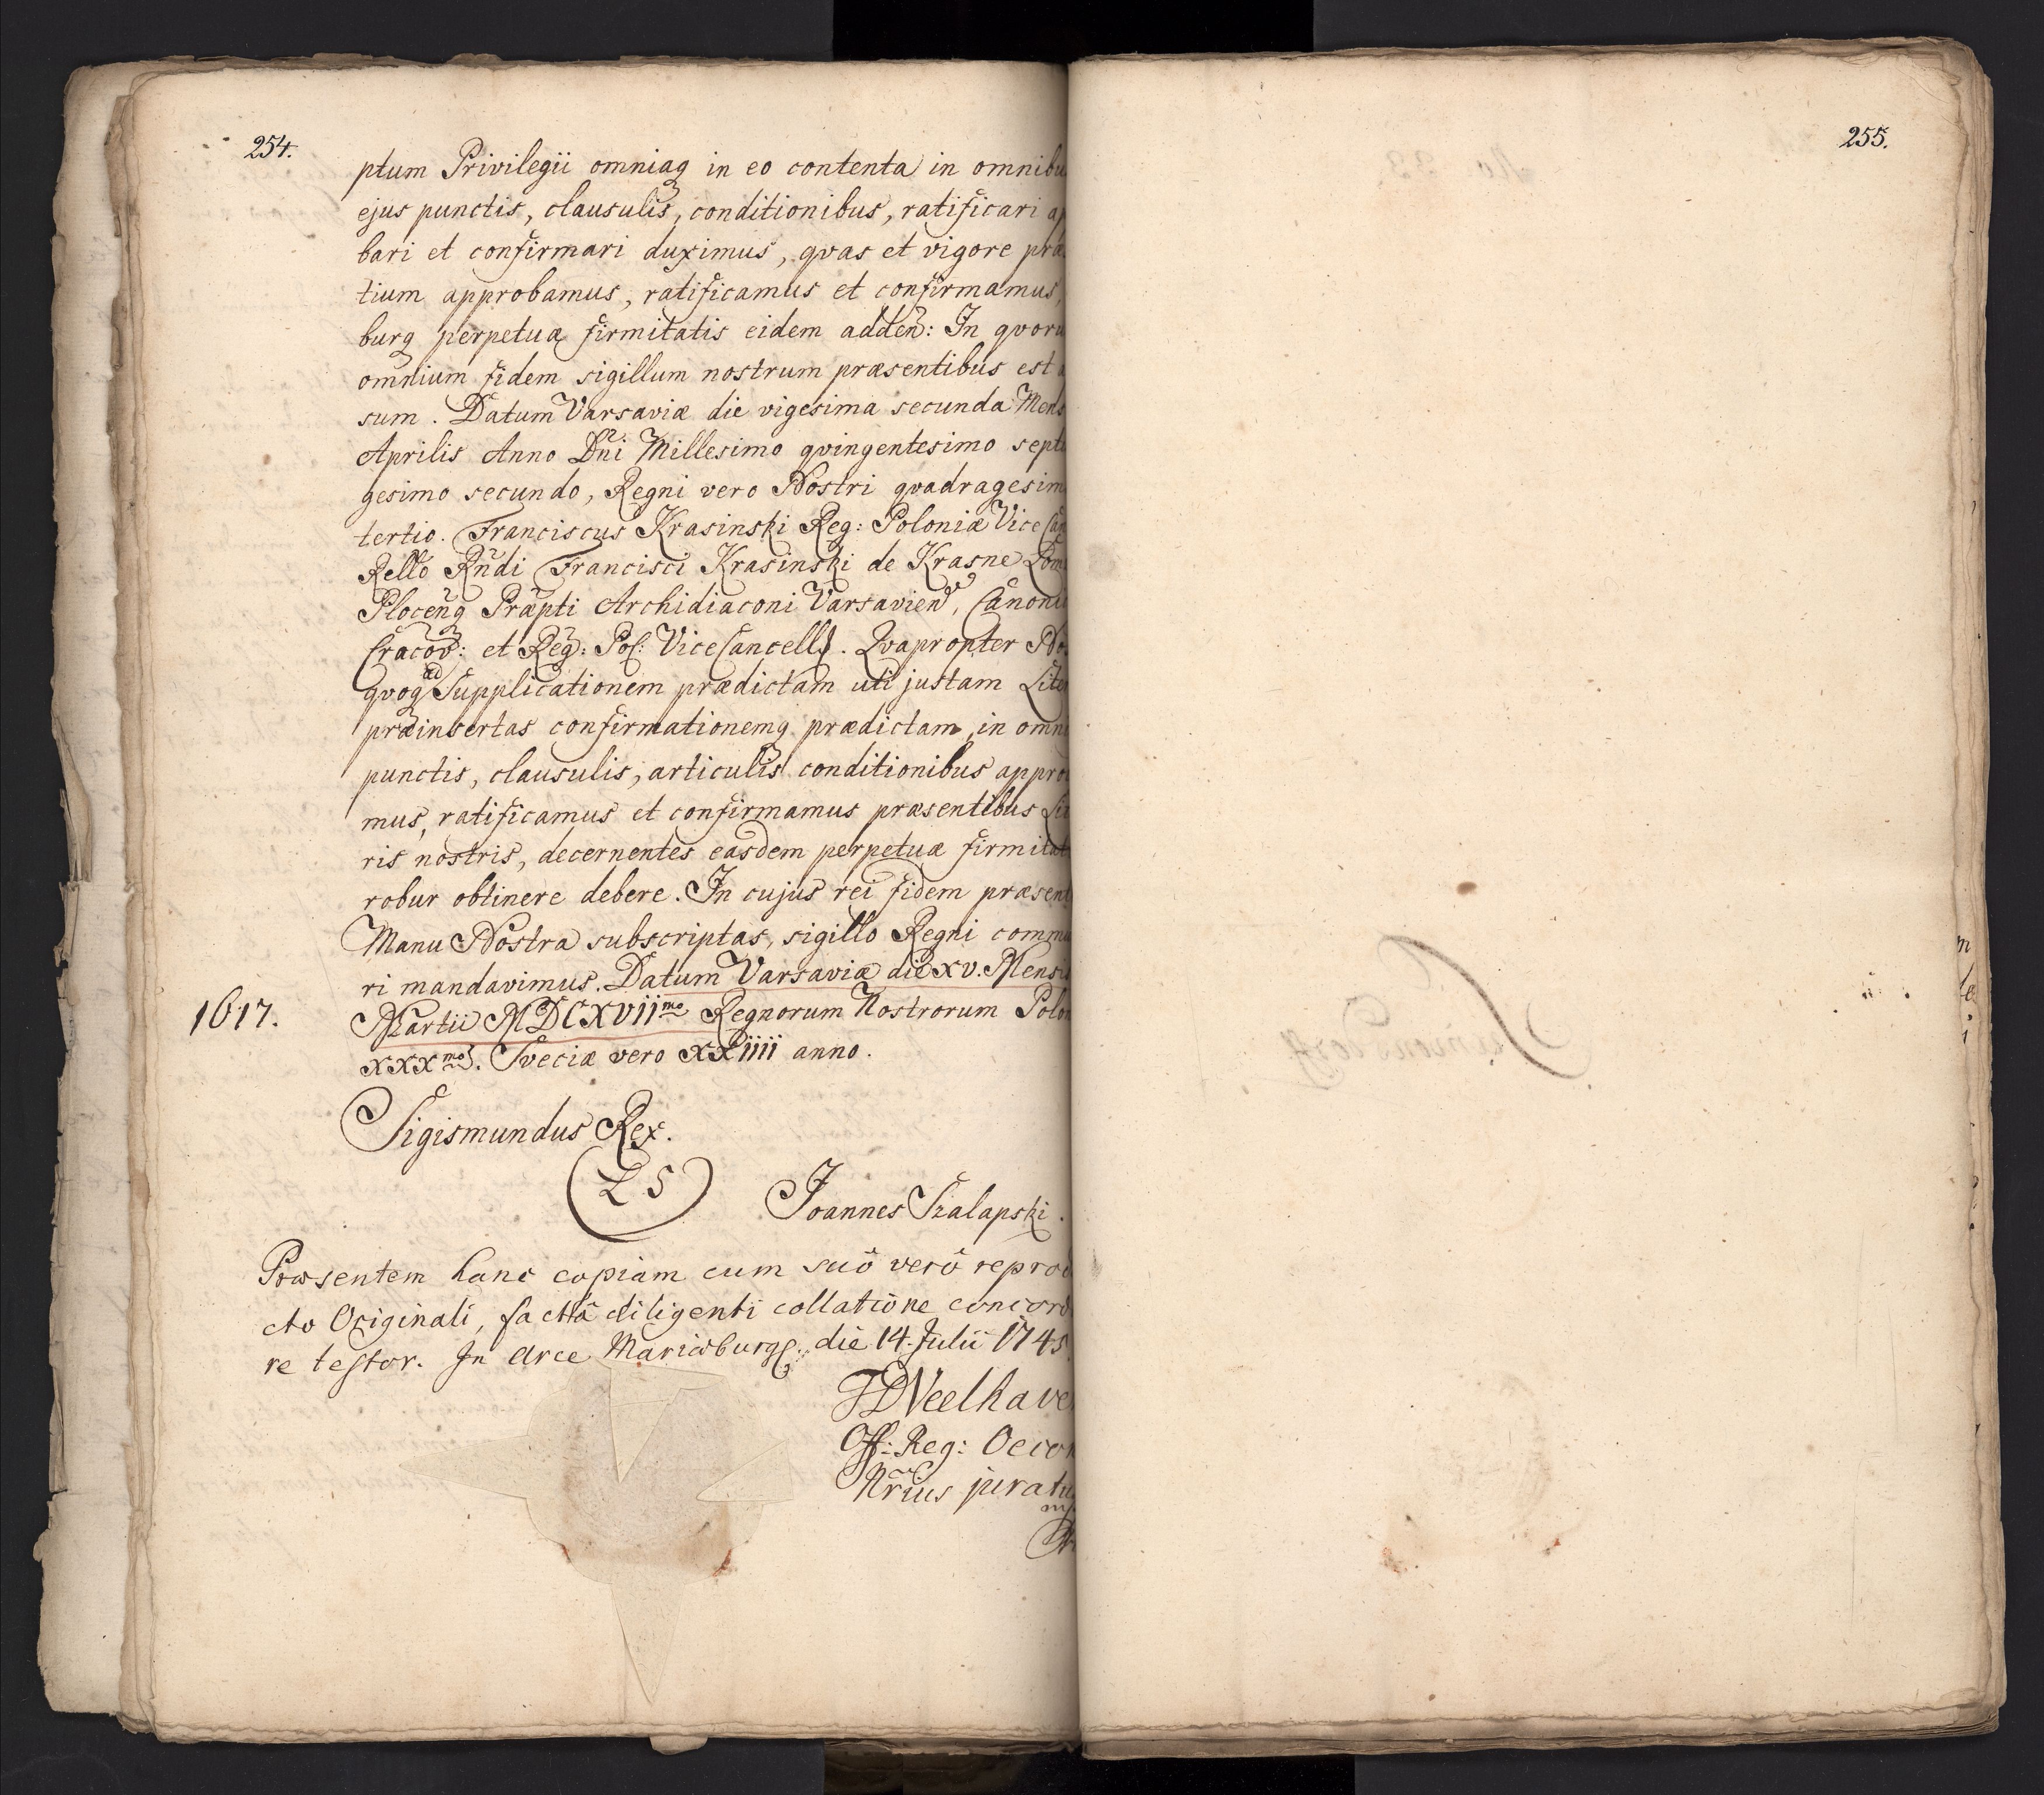 254.
ptum Privilegii omniaq in eo contenta in omnibu
ejus punctis, clausulis, conditionibus, ratificari ap
bari et confirmari duximus, qvas et vigore præ
tium approbamus, ratificamus et confirmamus,
burq perpetuæ firmitatis eidem adden: In qvoru
omnium fidem sigillum nostrum præsentibus est a
sum. Datum Varsaviæ die vigesima secunda Mens
Aprilis Anno Dni Millesimo qvingentesimo septu
gesimo secundo, Regni vero Nostri qvadragesim
tertio. Franciscus Krasinski Reg: Poloniæ Vice Can
Rello Rndi Francisci Krasinski de Krasne Lom
Plocenq Præpti Archidiaconi Varsavien, Canoni
Cracov: et Reg: Pol: ViceCancell. Qvapropter No
qvoq ad Supplicationem prædictam uti justam Liter
præinsertas confirmationemq prædictam, in omni
punctis, clausulis, articulis conditionibus appro
mus, ratificamus et confirmamus præsentibus Lit
ris nostris, decernentes easdem perpetuæ firmitat
robur obtinere debere. In cujus rei fidem præsent
Manu Nostra subscriptas, sigillo Regni commu
ri mandavimus. Datum Varsaviæ die xv. Mensis
1617.
Martii MDCXVIImo Regnorum Nostrorum Polon
xxxmo. Sveciæ vero XXIIII anno.
Sigismundus Rex.
LS
Joannes Szalapski.
Præsentem hanc copiam cum suô verô reprod
cto Originali, factâ diligenti collatione concorda
re testor. In Arce Mariæburg: die 14. Julii 1745.
Off: Reg: Oecon
Nrius juratu
255.